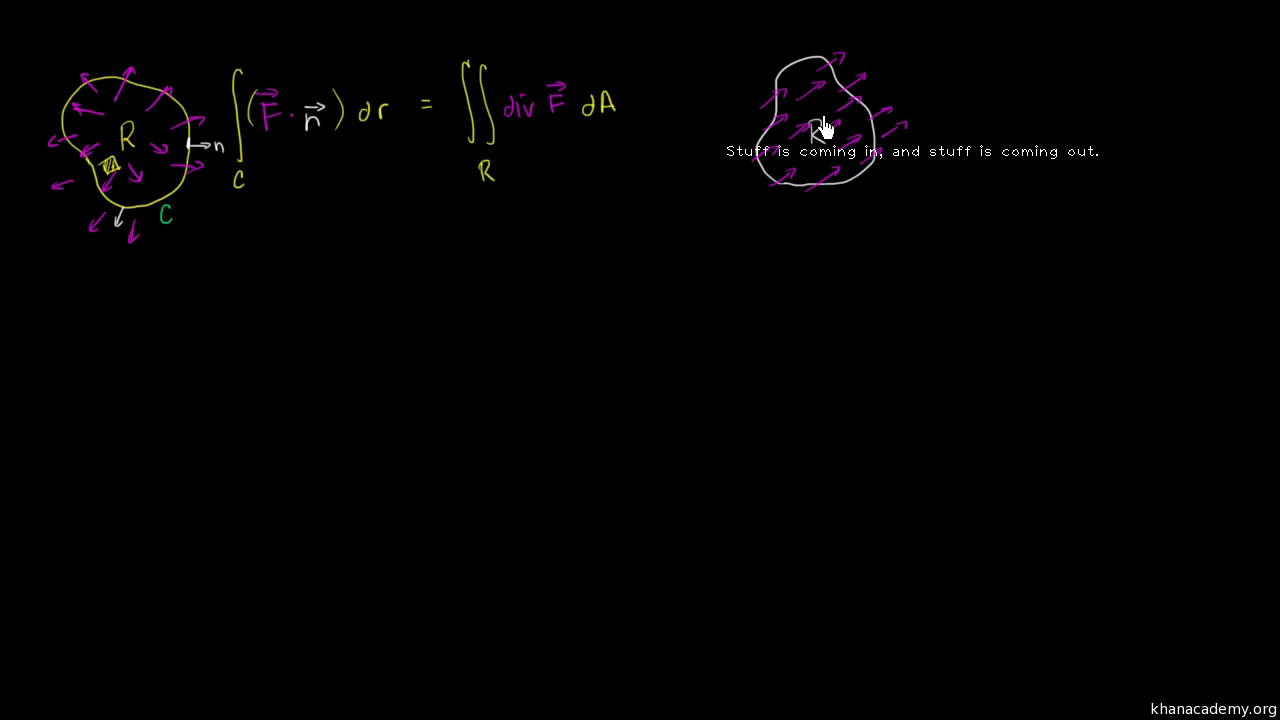 R
n
C
∫ (F⃗ · n⃗) dr = ∬ div F⃗ dA
C
R
R
Stuff is coming in, and stuff is coming out.
khanacademy.org